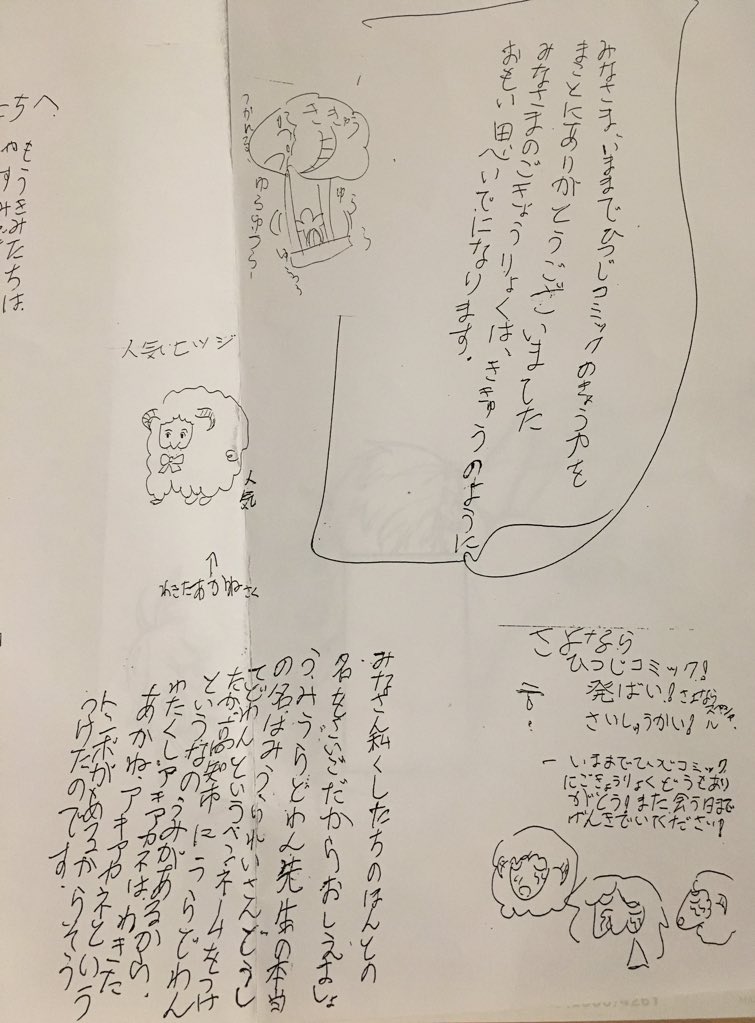 みなさま、いままでひつじコミックのきょうりょくを
まことにありがとうございました
みなさまのごきょうりょくは、ききゅうのように
おもい思いでになります。
ききゅう
つかれる、
ゆらゆら
ゆら
人気ヒツジ
人気
↑
わきたあかねさく
さよなら
ひつじコミック!
発ばい!さよならスペシャル
さいしゅうかい!
いままでひつじコミック
にごきょうりょくどうもあり
がとう!また会う日まで
げんきでいてください!
みなさん私くしたちのほんとの
名をさいごだからおしえましょ
う、みうらどわん先生の本当
の名はみうられいさんどうし
てどわんというペンネームをつけ
たか、高知市にうらどわん
というなのうみがあるから、
わたくしアキアカネは、わきた
あかね、アキアカネという
トンボがいるからそう
つけたのです。
たちへ
もうきみたちは